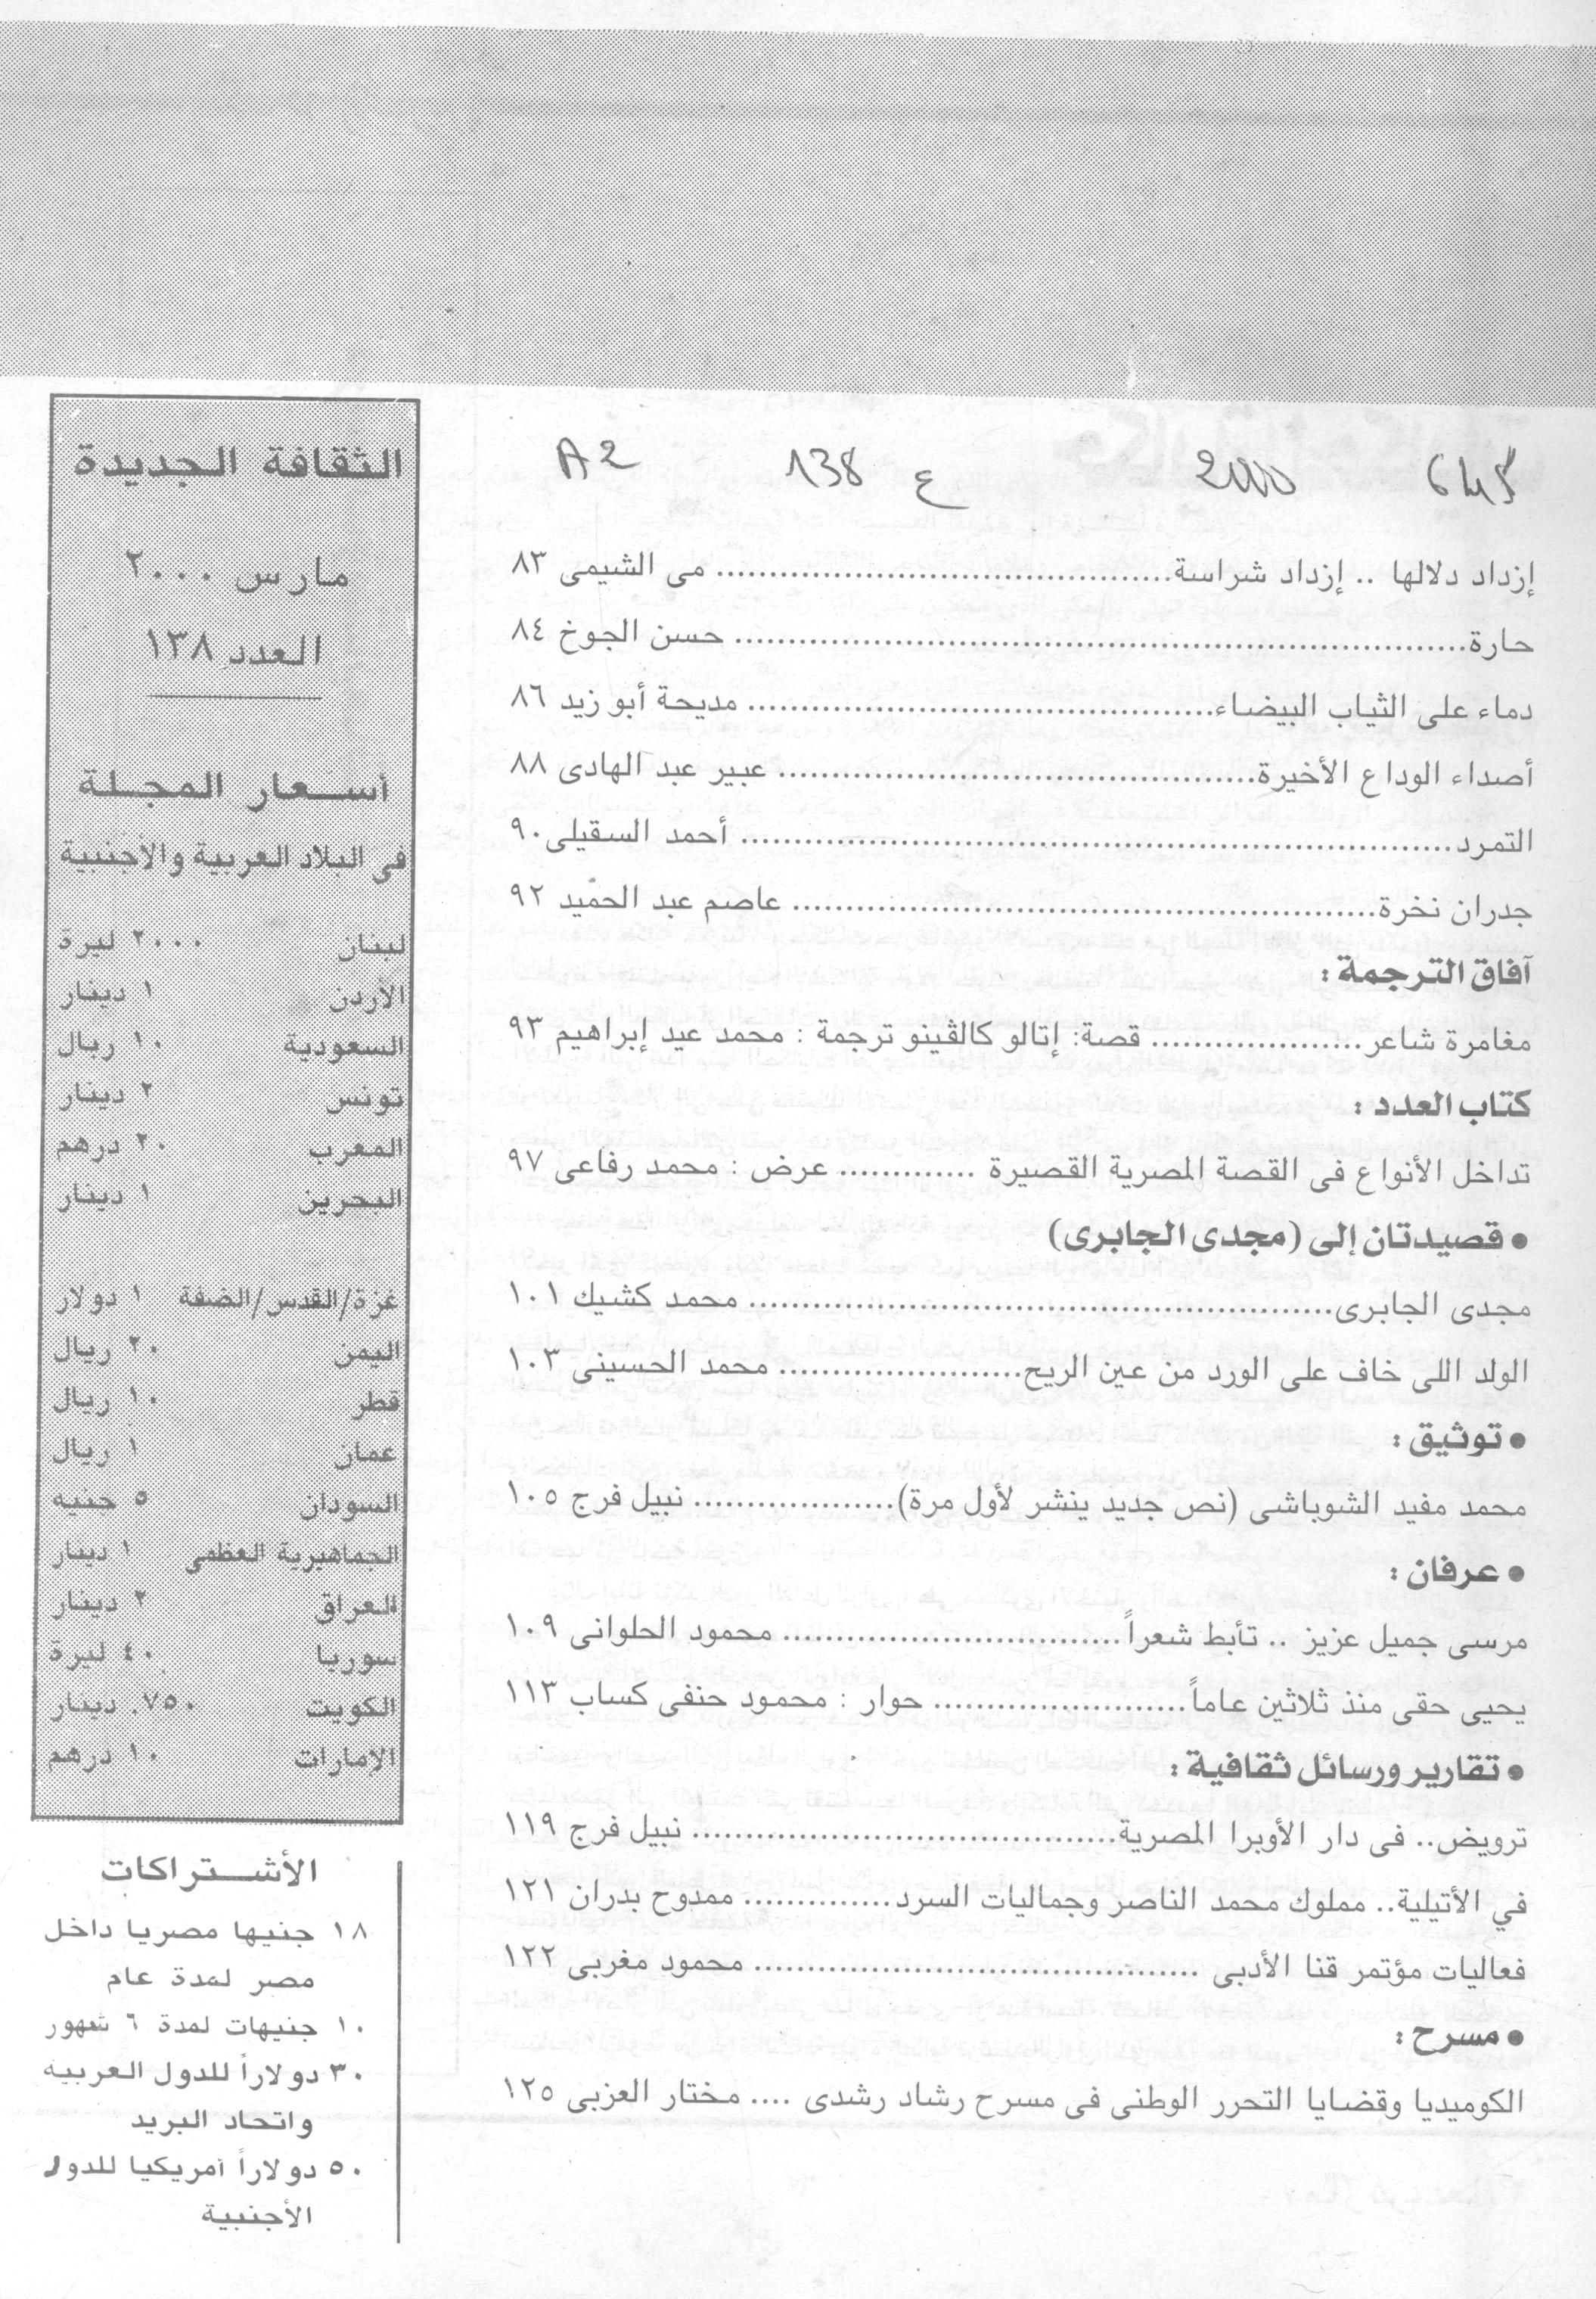 645 2000 ع 138 A2
إزداد دلالها .. إزداد شراسة............................................ مى الشيمى ٨٣
حارة...................................................................... حسن الجوخ ٨٤
دماء على الثياب البيضاء............................................. مديحة أبو زيد ٨٦
أصداء الوداع الأخيرة.............................................. عبير عبد الهادى ٨٨
التمرد.................................................................... أحمد السقيلى ٩٠
جدران نخرة........................................................ عاصم عبد الحميد ٩٢
آفاق الترجمة :
مغامرة شاعر.................... قصة: إتالو كالڤينو ترجمة : محمد عيد إبراهيم ٩٣
كتاب العدد :
تداخل الأنواع فى القصة المصرية القصيرة ............. عرض : محمد رفاعى ٩٧
• قصيدتان إلى (مجدى الجابرى)
مجدى الجابرى........................................................ محمد كشيك ١٠١
الولد اللى خاف على الورد من عين الريح....................... محمد الحسينى ١٠٣
• توثيق :
محمد مفيد الشوباشى (نص جديد ينشر لأول مرة)................... نبيل فرج ١٠٥
• عرفان :
مرسى جميل عزيز .. تأبط شعراً................................ محمود الحلوانى ١٠٩
يحيى حقى منذ ثلاثين عاماً........................ حوار : محمود حنفى كساب ١١٣
• تقارير ورسائل ثقافية :
ترويض.. فى دار الأوبرا المصرية......................................... نبيل فرج ١١٩
في الأتيلية.. مملوك محمد الناصر وجماليات السرد.............. ممدوح بدران ١٢١
فعاليات مؤتمر قنا الأدبى ........................................... محمود مغربى ١٢٢
• مسرح :
الكوميديا وقضايا التحرر الوطنى فى مسرح رشاد رشدى .... مختار العزبى ١٢٥
الثقافة الجديدة
مارس ٢٠٠٠
العدد ١٣٨
أسـعار المجـلة
فى البلاد العربية والأجنبية
لبنان ٢٠٠٠ ليرة
الأردن ١ دينار
السعودية ١٠ ريال
تونس ٢ دينار
المغرب ٢٠ درهم
البحرين ١ دينار
غزة/القدس/الضفة ١ دولار
اليمن ٢٠ ريال
قطر ١٠ ريال
عمان ١ ريال
السودان ٥ جنيه
الجماهيرية العظمى ١ دينار
العراق ٢ دينار
سوريا ٤٠ ليرة
الكويت ٧٥٠. دينار
الإمارات ١٠ درهم
الأشـتراكات
١٨ جنيها مصريا داخل
مصر لمدة عام
١٠ جنيهات لمدة ٦ شهور
٣٠ دولاراً للدول العربيه
واتحاد البريد
٥٠ دولاراً أمريكيا للدول
الأجنبية